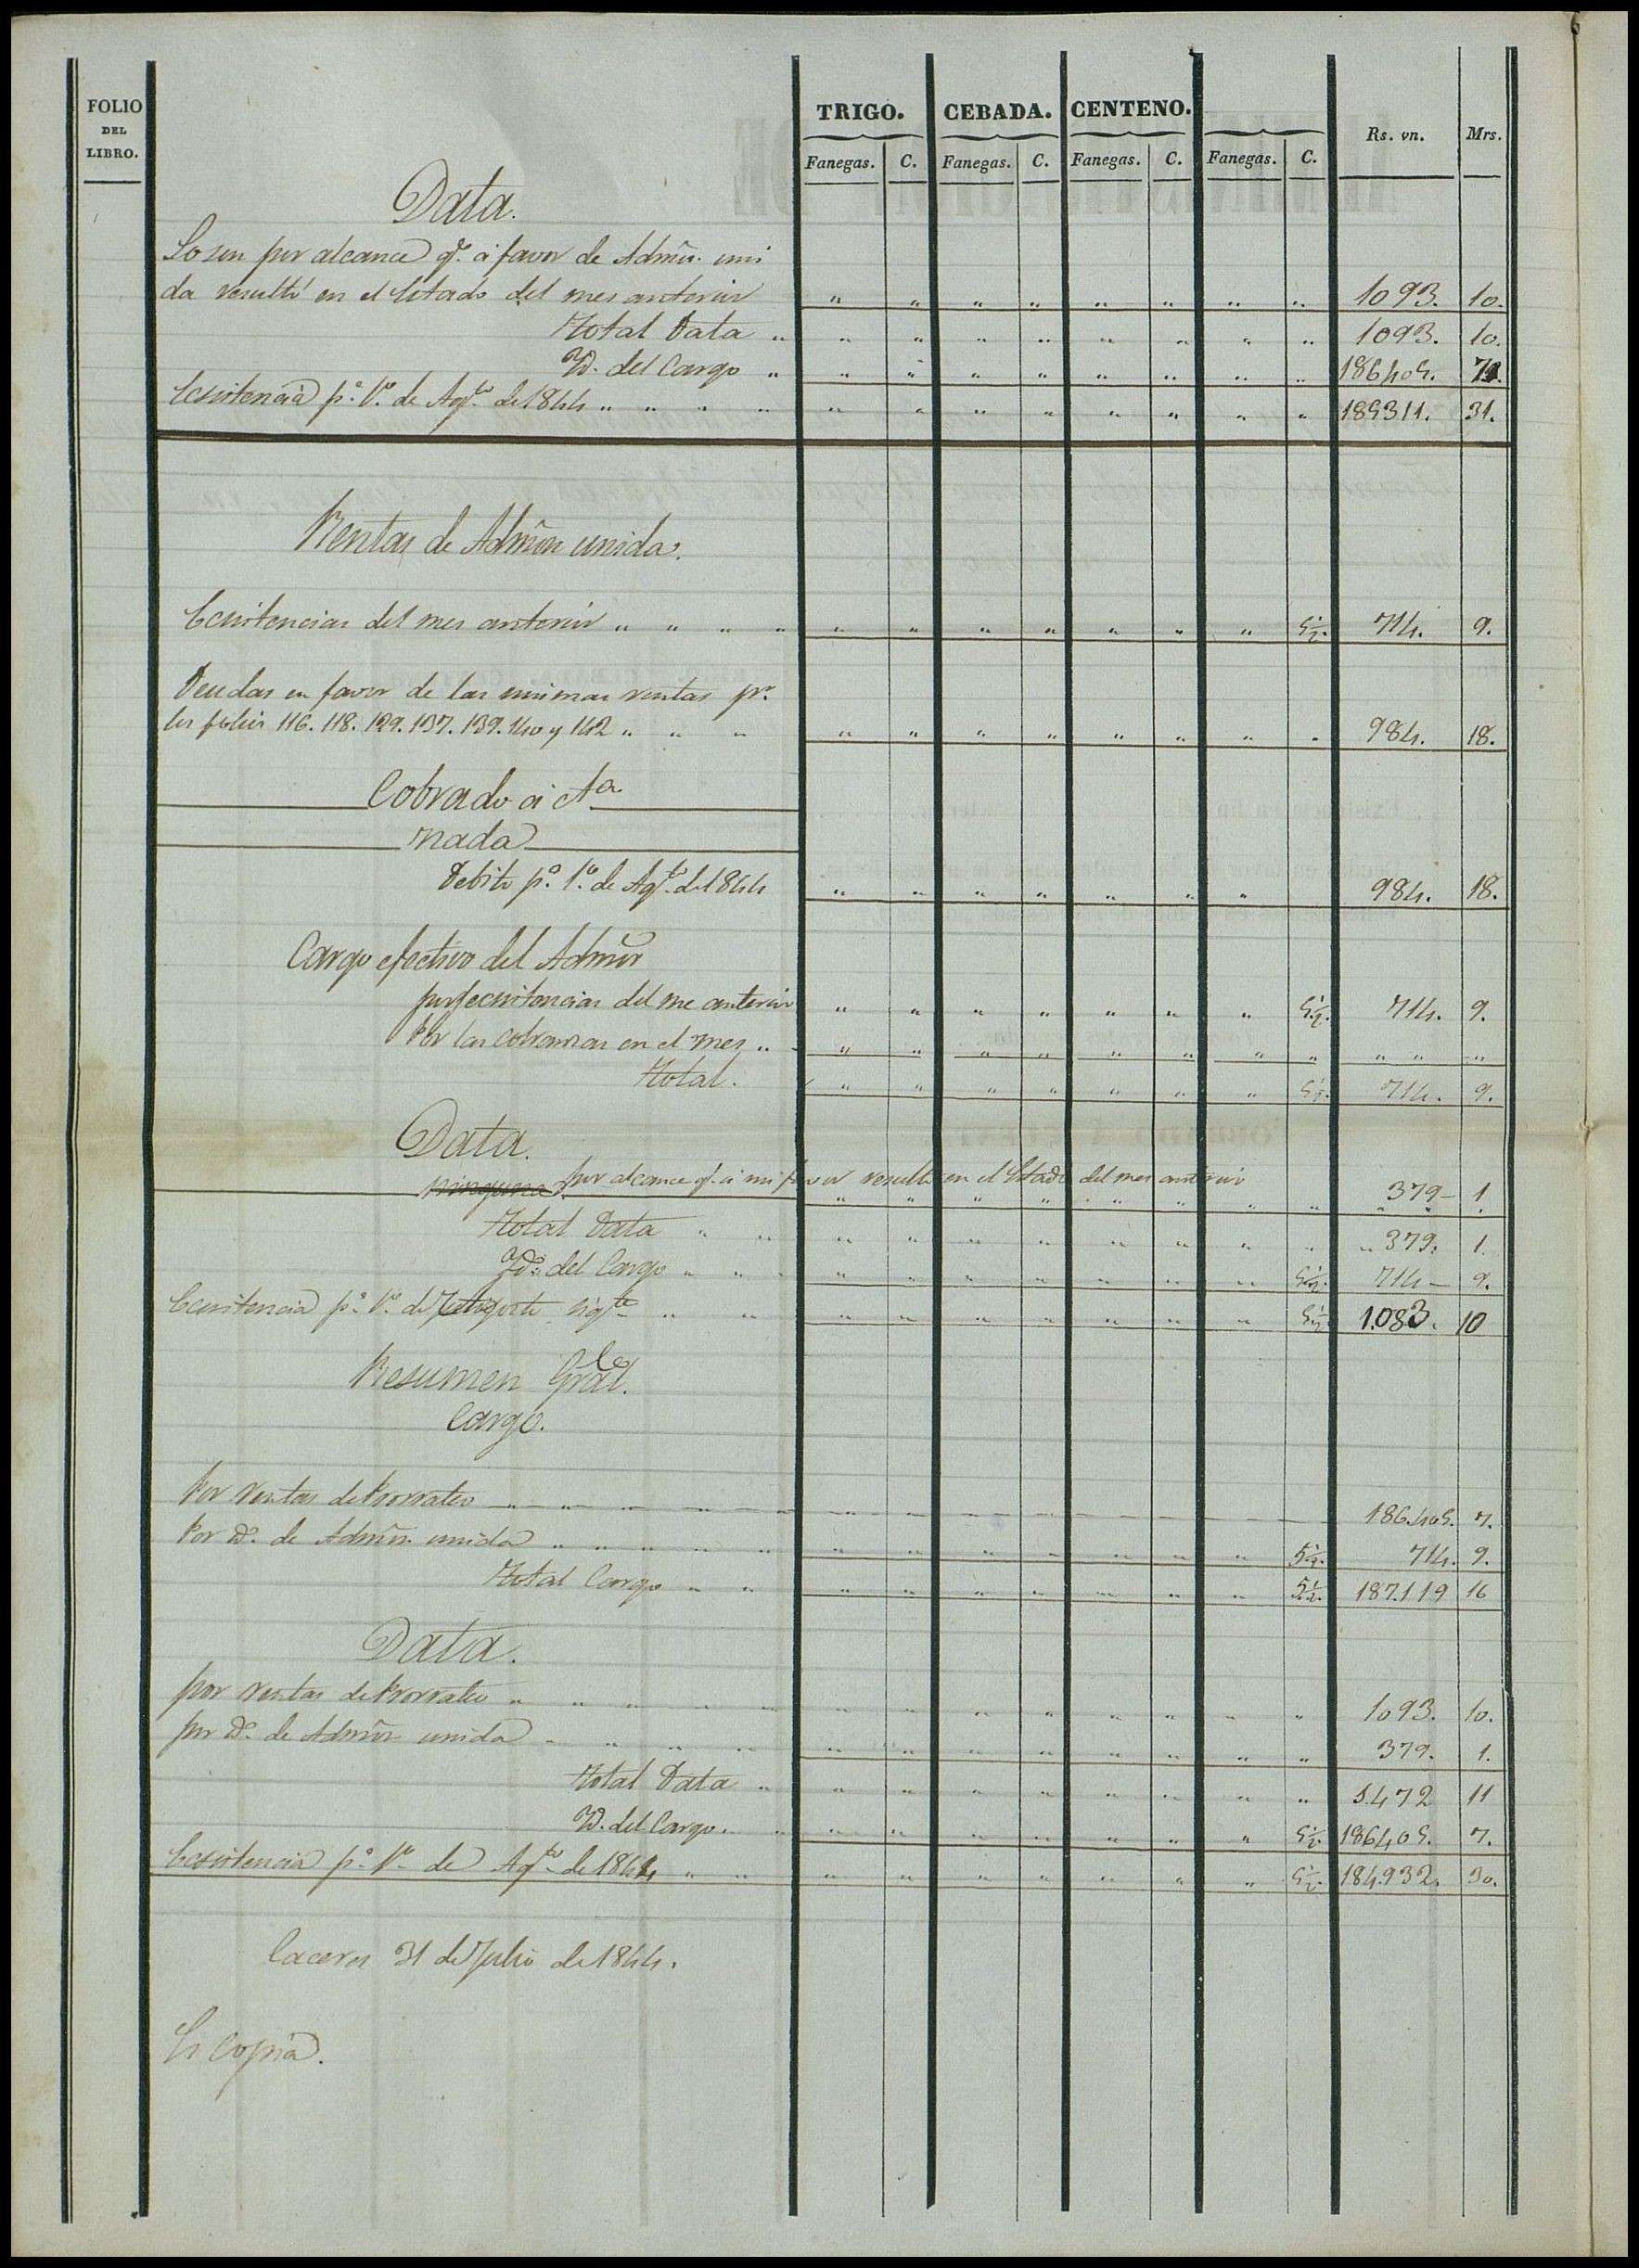 FOLIO DEL LIBRO. TRIGO. CEBADA. CENTENO. Rs. vn. Mrs.
Fanegas. C. Fanegas. C. Fanegas. C. Fanegas. C.
Data.
Lo son por alcance qe. á favor de Admon. uni
da resultó en el Estado del mes anterior " " " " " " " " 1093. 10.
Total Data " " " " " " " " " 1093. 10.
Yd. del Cargo " " " " " " " " " 186405. 7.
Ecsistencia pa. 1o. de Agto. de 1844 " " " " " " " " " " " " 185311. 31.
Rentas de Admon unida.
Ecsistencias del mes anterior " " " " " " " " " " " 5½. 714. 9.
Deudas en favor de las mismas rentas pr.
los folios 116. 118. 129. 137. 139. 140 y 142 " " " " " " " " " " " 984. 18.
Cobrado á cta
nada
Debito pa. 1o. de Agto. de 1844 " " " " " " " 984. 18.
Cargo efectivo del Admor
por ecsistencias del me anterior " " " " " " " 5½. 714. 9.
Por las cobranzas en el mes " " " " " " " " " " " "
Total. " " " " " " " 5½. 714. 9.
Data.
ninguna por alcance qe. á mi favor resultó en el Estado del mes anterior " " " " " " " " 379- 1
Total Data " " " " " " " " " " 379. 1.
Yd. del Cargo " " " " " " " " " 5½. 714- 9.
Ecsistencia pa. 1o. de sigte " " " " " " " " " 5½. 1.083. 10
Resumen Gral.
Cargo.
Por rentas de Prorrateo 186.405. 7.
Por Yd. de Admon. unida " " " " " " " " " " " 5½. 714. 9.
Total Cargo " " " " " " " " " 5½. 187.119 16
Data.
por rentas de Prorrateo " " " " " " " " " " " " 1093. 10.
por Yd. de Admon unida " " " " " " " " " " " 379. 1.
Total Data " " " " " " " " " 1.472 11
Yd. del Cargo. " " " " " " " " 5½. 186405. 7.
Ecsistencia pa. 1o. de Agto. de 1844 " " " " " " " " " 5½. 184.932. 30.
Caceres 31 de Julio de 1844.
Es copia.